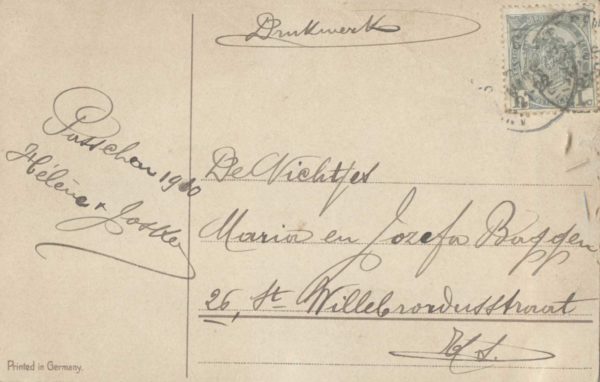 Drukwerk
Paschen 1910
Hélène &
De Nichtjes
Maria en Jozefa Baggen
26, St Willebrordusstraat
Printed in Germany.